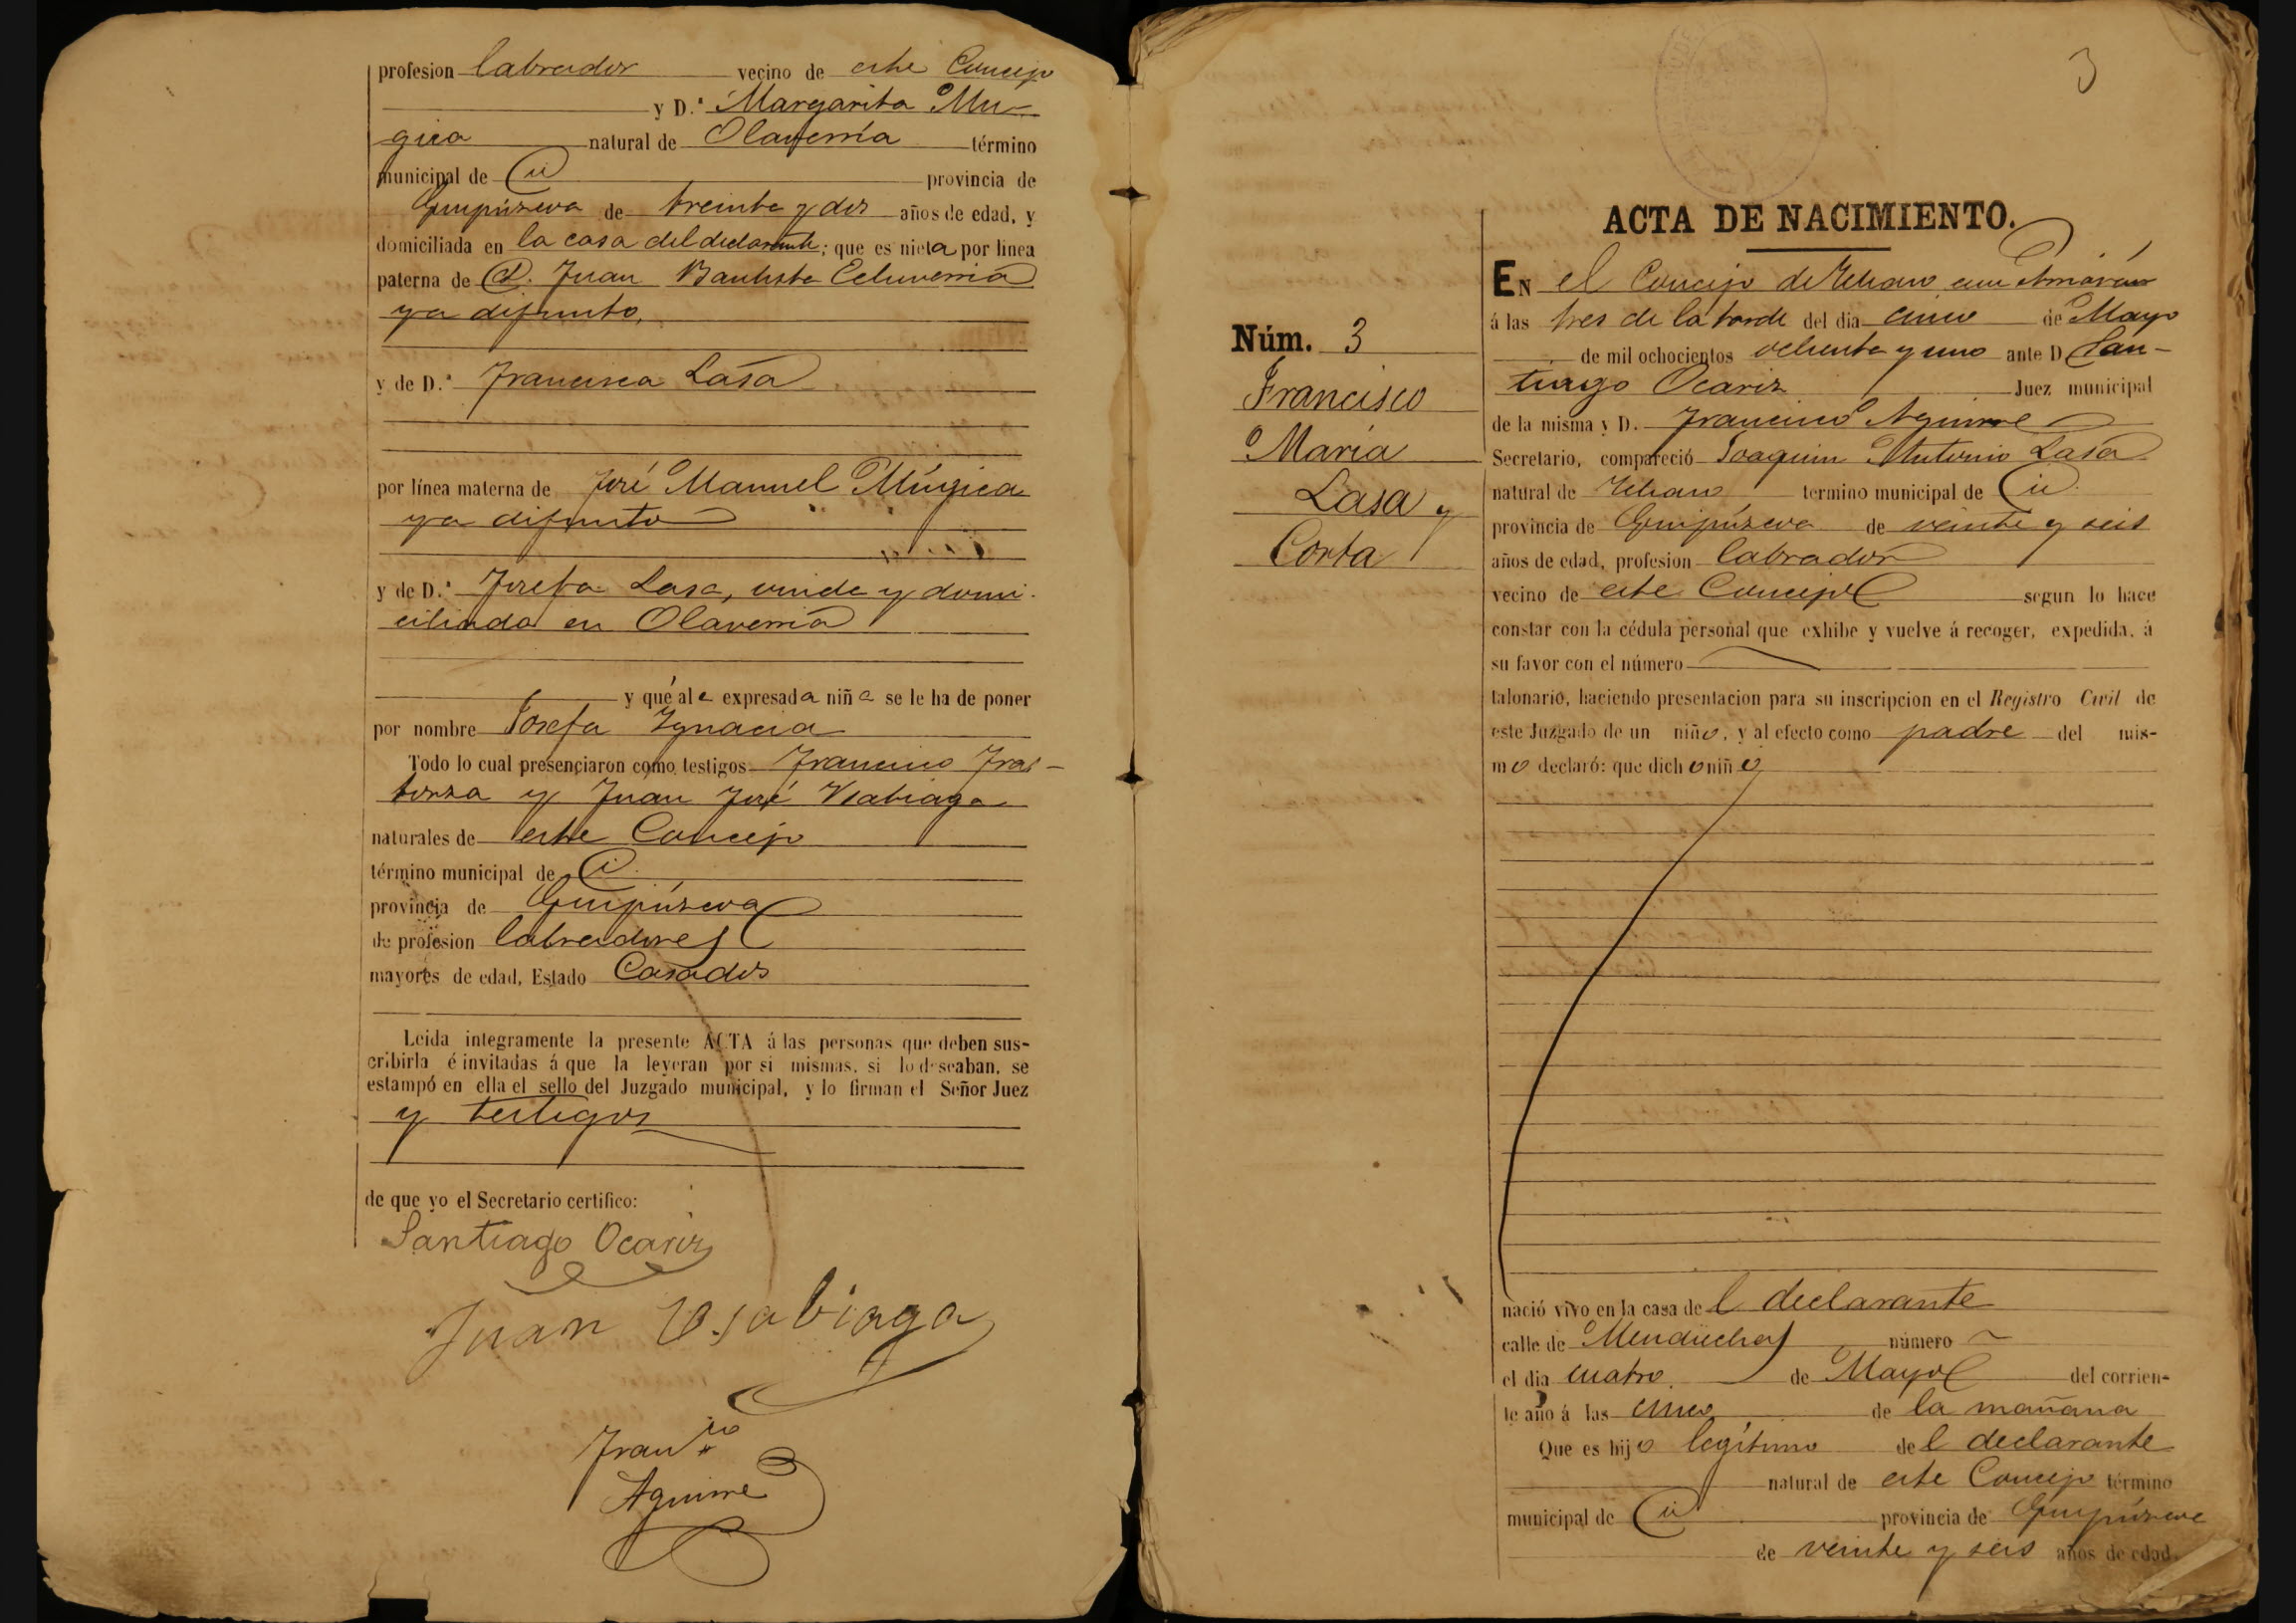 profesion labrador vecino de este Concejo
y D.ª Margarita Mu-
gica natural de Olaverría término
municipal de id provincia de
Guipúzcoa de treinta y dos años de edad, y
domiciliada en la casa del declarante; que es nieta por línea
paterna de D. Juan Bautista Echeverria
ya difunto,
y de D.ª Francisca Lasa
por línea materna de José Manuel Múgica
ya difunto
y de D.ª Josefa Lasa, viuda y domi-
ciliada en Olaverria
y que al a expresada niña se le ha de poner
por nombre Josefa Ygnacia
Todo lo cual presenciaron como testigos Francisco
y Juan José Usabiaga
naturales de este Concejo
término municipal de id
provincia de Guipúzcoa
de profesion labradores
mayores de edad, Estado Casados
Leida integramente la presente ACTA á las personas que deben sus-
cribirla é invitadas á que la leyeran por si mismas, si lo deseaban, se
estampó en ella el sello del Juzgado municipal, y lo firman el Señor Juez
y testigos
de que yo el Secretario certifico:
Santiago Ocariz
Juan Usabiaga
Fran.co
Aguirre
3
ACTA DE NACIMIENTO.
Núm. 3
Francisco
María
Lasa y
Corta
EN el Concejo de
á las tres de la tarde del dia cinco de Mayo
de mil ochocientos ochenta y uno ante D San-
tiago Ocariz Juez municipal
de la misma y D. Francisco Aguirre
Secretario, compareció Joaquin Antonio Lasa
natural de termino municipal de id
provincia de Guipúzcoa de veinte y seis
años de edad, profesion labrador
vecino de este Concejo segun lo hace
constar con la cédula personal que exhibe y vuelve á recoger, expedida, á
su favor con el número
talonario, haciendo presentacion para su inscripcion en el Registro Civil de
este Juzgado de un niño, y al efecto como padre del mis-
mo declaró: que dicho niño
nació vivo en la casa del declarante
calle de número
el dia cuatro de Mayo del corrien-
te año á las cinco de la mañana
Que es hijo legítimo del declarante
natural de este Concejo término
municipal de id provincia de Guipúzcoa
de veinte y seis años de edad.